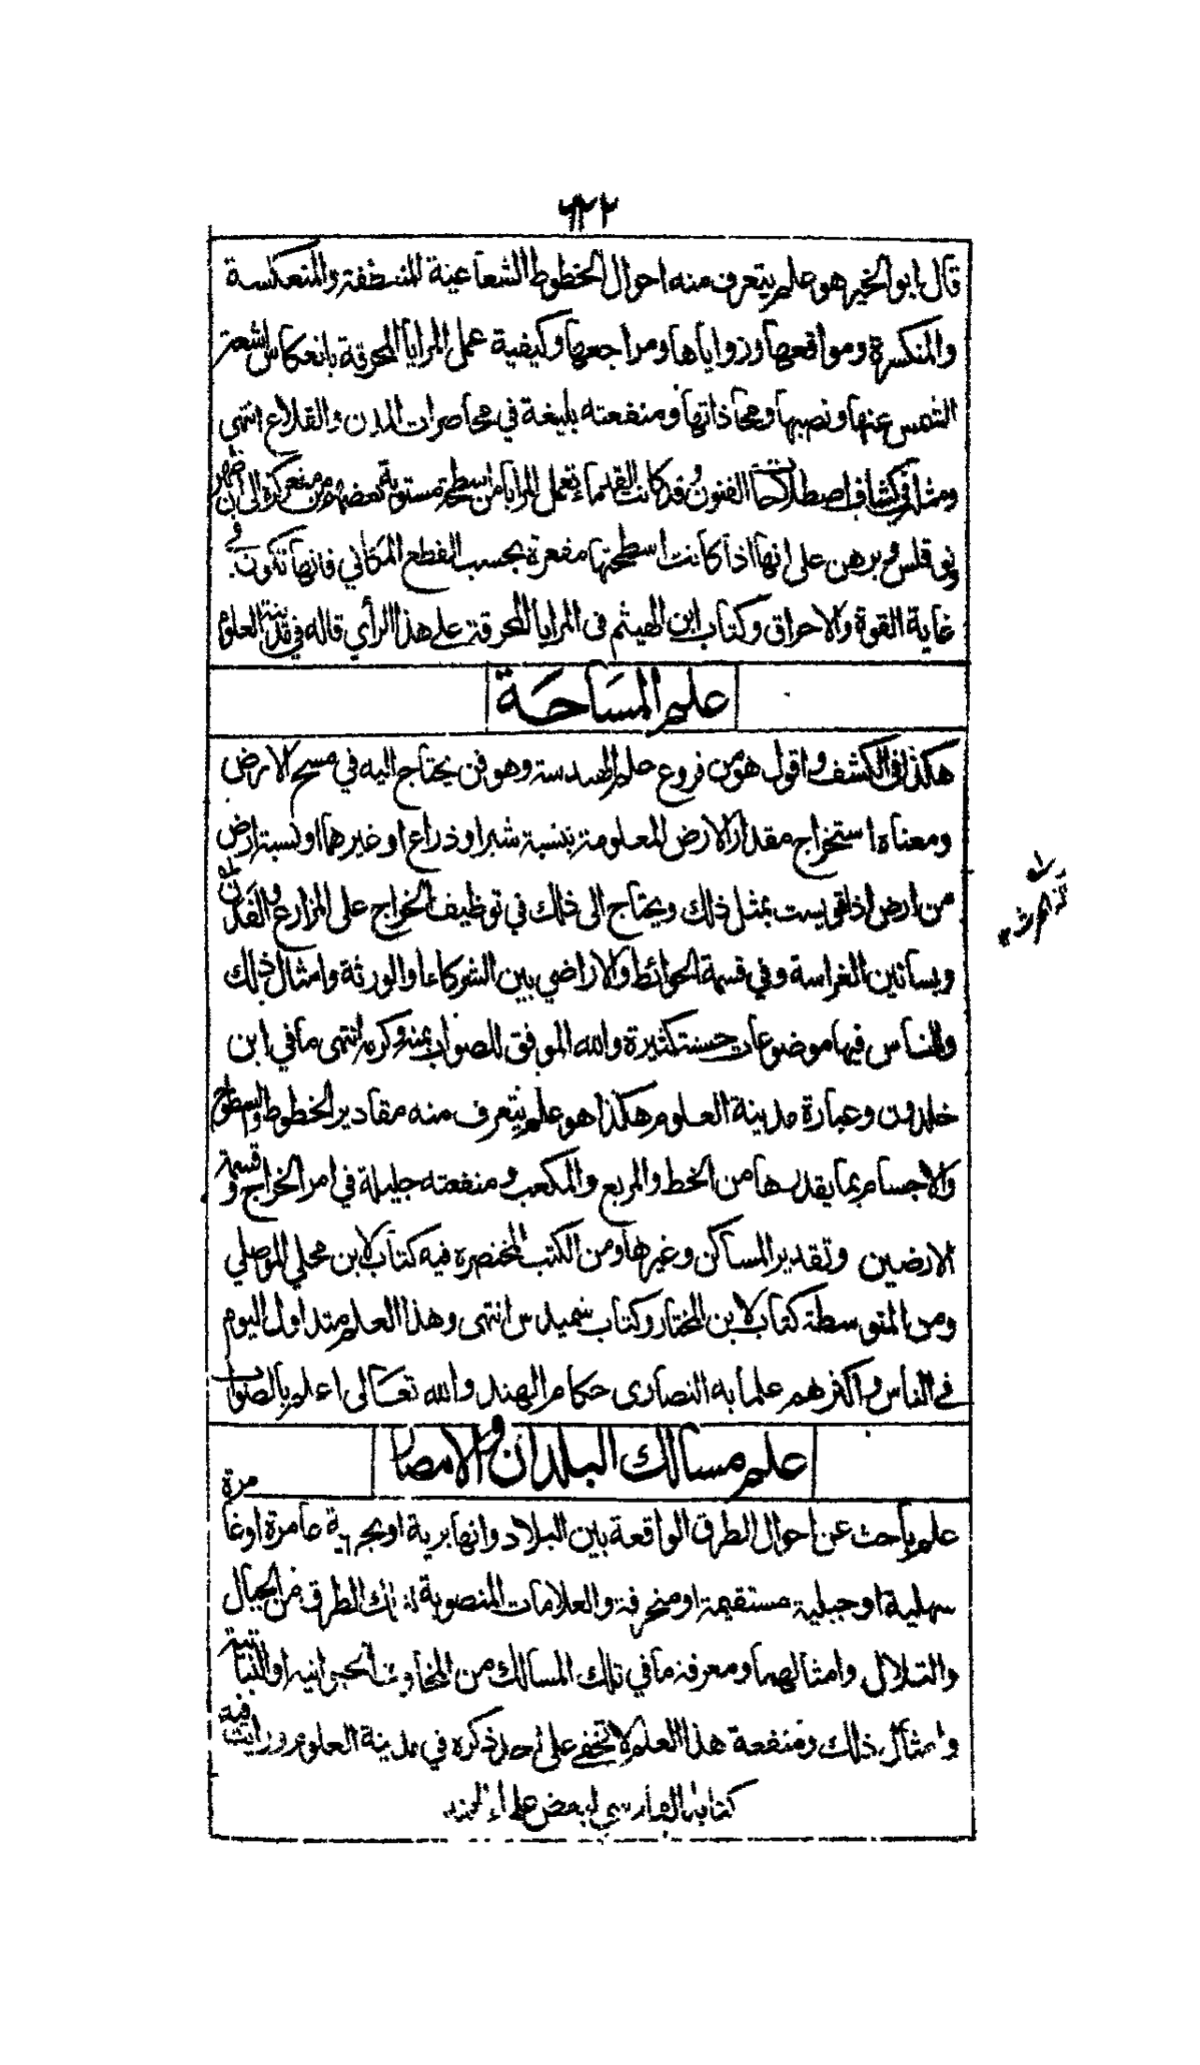 ٦٢٢
قال ابو الخير هو علم يتعرف منه احوال الخطوط الشعاعية المنعطفة والمنعكسة
والمنكسرة ومواقعها وزواياها ومراجعها وكيفية عمل المرايا المحرقة بانعكاس اشعة
الشمس عنها ونصبها ومحاذاتها ومنفعته بليغة في محاصرات المدن والقلاع انتهى
ومثله في كشاف اصطلاحات الفنون وقد كانت القدماء تعمل المرايا من اسطحة مستوية بعضهم من مقعر كرة الى ان ظهر
ديوقلس وبرهن على انها اذا كانت اسطحتها مقعرة بحسب القطع المكافي فانها تكون في
غاية القوة والاحراق وكتاب ابن الهيثم في المرايا المحرقة على هذا الرأي قاله في مدينة العلوم
علم المساحة
هكذا في الكشف واقول هو من فروع علم الهندسة وهو فن يحتاج اليه في مسح الارض
ومعناه استخراج مقدار الارض المعلومة بنسبة شبر او ذراع او غيرهما او نسبة ارض
من ارض اذا قويست بمثل ذلك ويحتاج الى ذلك في توظيف الخراج على المزارع والفدن
وبساتين الغراسة وفي قسمة الحوائط والاراضي بين الشركاء او الورثة وامثال ذلك
وللناس فيها موضوعات حسنة كثيرة والله الموفق للصواب بمنه وكرمه انتهى ما في ابن
خلدون وعبارة مدينة العلوم هكذا هو علم يتعرف منه مقادير الخطوط والسطوح
والاجسام بما يقدرها من الخط والمربع والمكعب ومنفعته جليلة في امر الخراج وقسمة
الارضين وتقدير المساكن وغيرها ومن الكتب المختصرة فيه كتاب لابن محلي الموصلي
ومن المتوسطة كتاب لابن المختار وكتاب شميدس انتهى وهذا العلم متداول اليوم
في الناس واكثرهم علما به النصارى حكام الهند والله تعالى اعلم بالصواب
علم مسالك البلدان والامصار
علم باحث عن احوال الطرق الواقعة بين البلاد وانها برية او بحرية عامرة او غامرة
سهلية او جبلية مستقيمة او منحرفة والعلامات المنصوبة لتلك الطرق من الجبال
والتلال وامثالهما ومعرفة ما في تلك المسالك من المخاوف الحيوانية او النباتية
وامثال ذلك ومنفعة هذا العلم لا تخفى على احد ذكره في مدينة العلوم ورايت فيه
كتابا بالفارسي لبعض علماء الهند